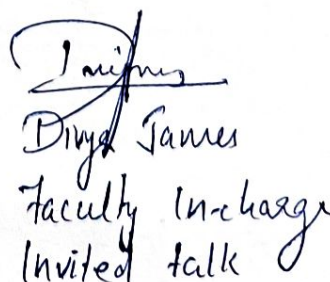 Divya James
Faculty In-charge
Invited talk